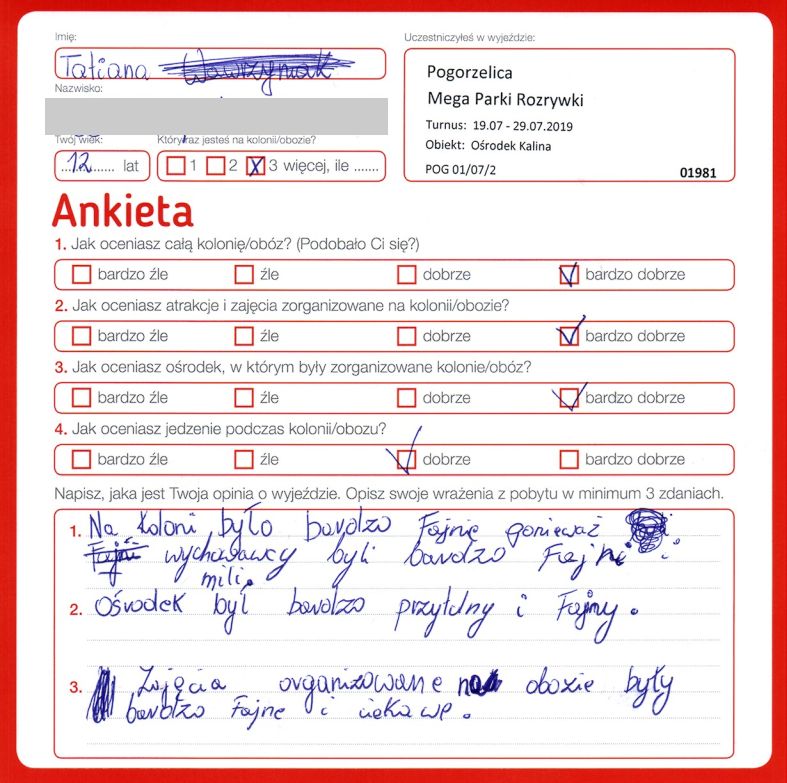 Imię:
Tatiana
Nazwisko:
Twój wiek: Który raz jesteś na kolonii/obozie?
12 lat 1 2 X 3 więcej, ile .......
Uczestniczyłeś w wyjeździe:
Pogorzelica
Mega Parki Rozrywki
Turnus: 19.07 - 29.07.2019
Obiekt: Ośrodek Kalina
POG 01/07/2 01981
Ankieta
1. Jak oceniasz całą kolonię/obóz? (Podobało Ci się?)
bardzo źle źle dobrze bardzo dobrze
2. Jak oceniasz atrakcje i zajęcia zorganizowane na kolonii/obozie?
bardzo źle źle dobrze bardzo dobrze
3. Jak oceniasz ośrodek, w którym były zorganizowane kolonie/obóz?
bardzo źle źle dobrze bardzo dobrze
4. Jak oceniasz jedzenie podczas kolonii/obozu?
bardzo źle źle dobrze bardzo dobrze
Napisz, jaka jest Twoja opinia o wyjeździe. Opisz swoje wrażenia z pobytu w minimum 3 zdaniach.
1. Na koloni było bardzo Fajnie ponieważ
wychowawcy byli bardzo Fajni i
mili.
2. Ośrodek był bardzo przytulny i Fajny.
3. Zajęcia organizowane na obozie były
bardzo Fajne i ciekawe.